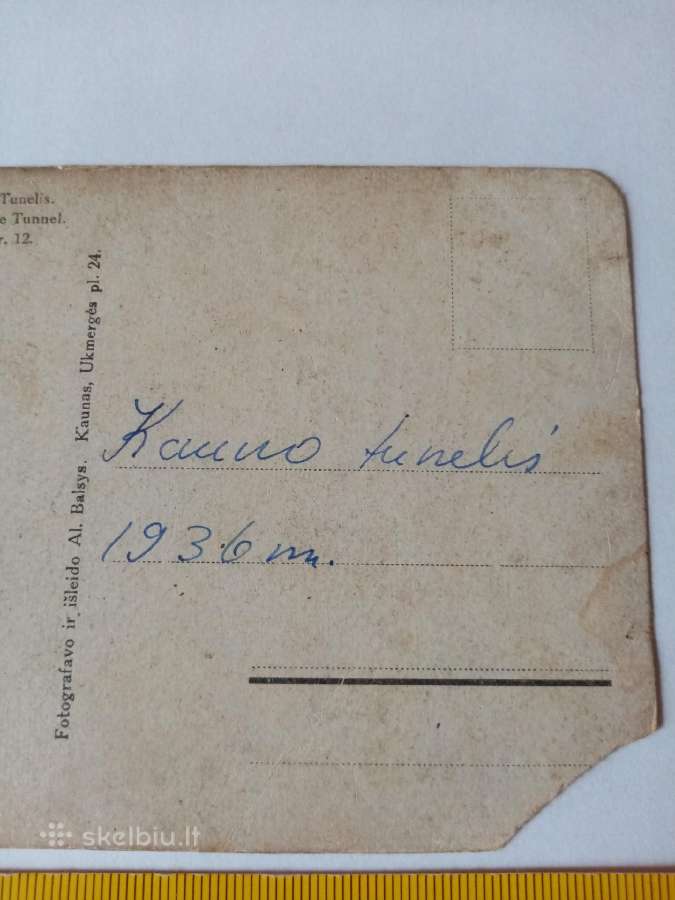 Tunelis.
e Tunnel.
r. 12.
Fotografavo ir išleido Al. Balsys. Kaunas, Ukmergės pl. 24.
Kauno tunelis
1936 m.
skelbiu.lt